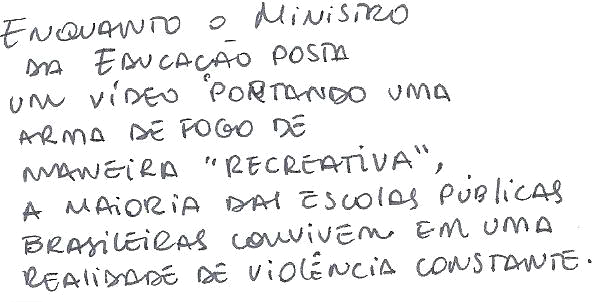 ENQUANTO O MINISTRO
DA EDUCAÇÃO POSTA
UM VÍDEO PORTANDO UMA
ARMA DE FOGO DE
MANEIRA "RECREATIVA",
A MAIORIA DAS ESCOLAS PÚBLICAS
BRASILEIRAS CONVIVEM EM UMA
REALIDADE DE VIOLÊNCIA CONSTANTE.